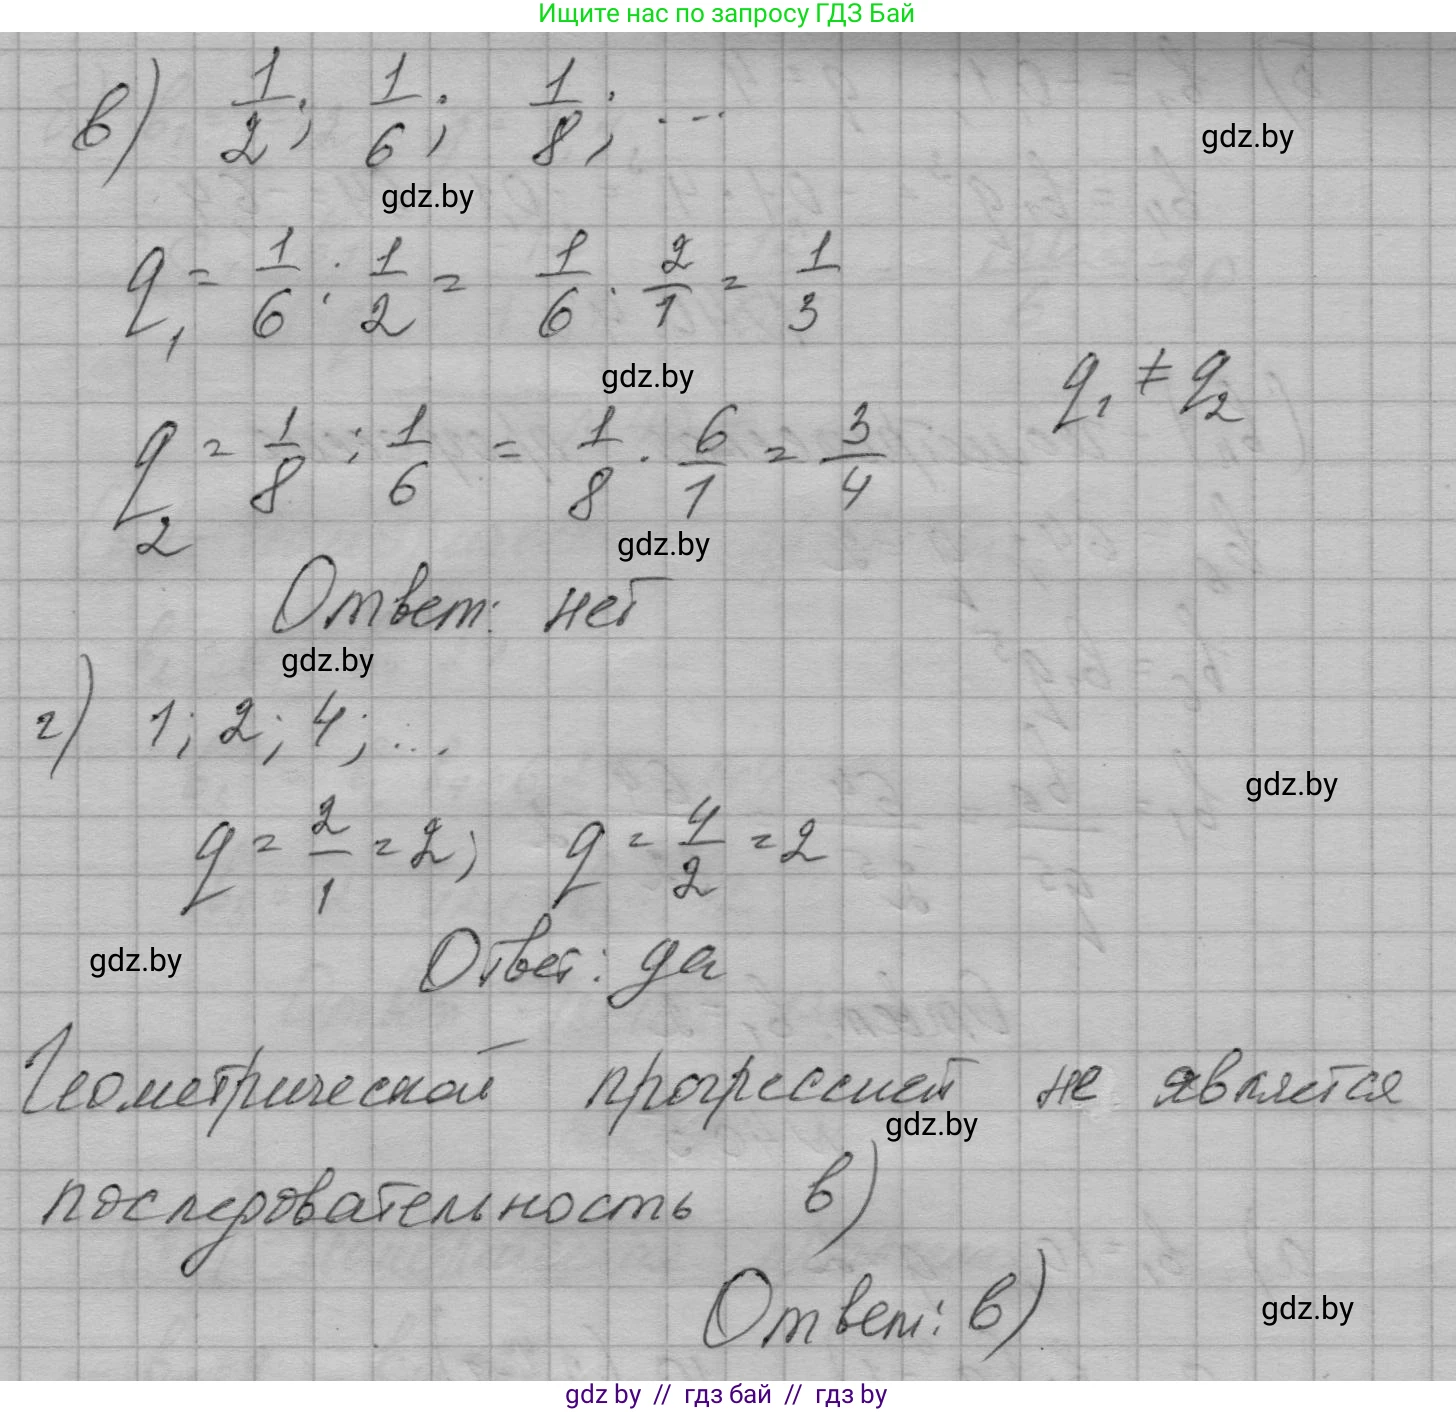 Ищите нас по запросу ГДЗ Бай
в) 1/2; 1/6; 1/8; ...
gdz.by
gdz.by
q₁ = 1/6 : 1/2 = 1/6 · 2/1 = 1/3
gdz.by
q₁ ≠ q₂
q₂ = 1/8 : 1/6 = 1/8 · 6/1 = 3/4
gdz.by
Ответ: нет
gdz.by
г) 1; 2; 4; ...
gdz.by
q = 2/1 = 2; q = 4/2 = 2
Ответ: да
gdz.by
Геометрической прогрессией не является
gdz.by
последовательность в)
Ответ: в)
gdz.by
gdz by // гдз бай // гдз by